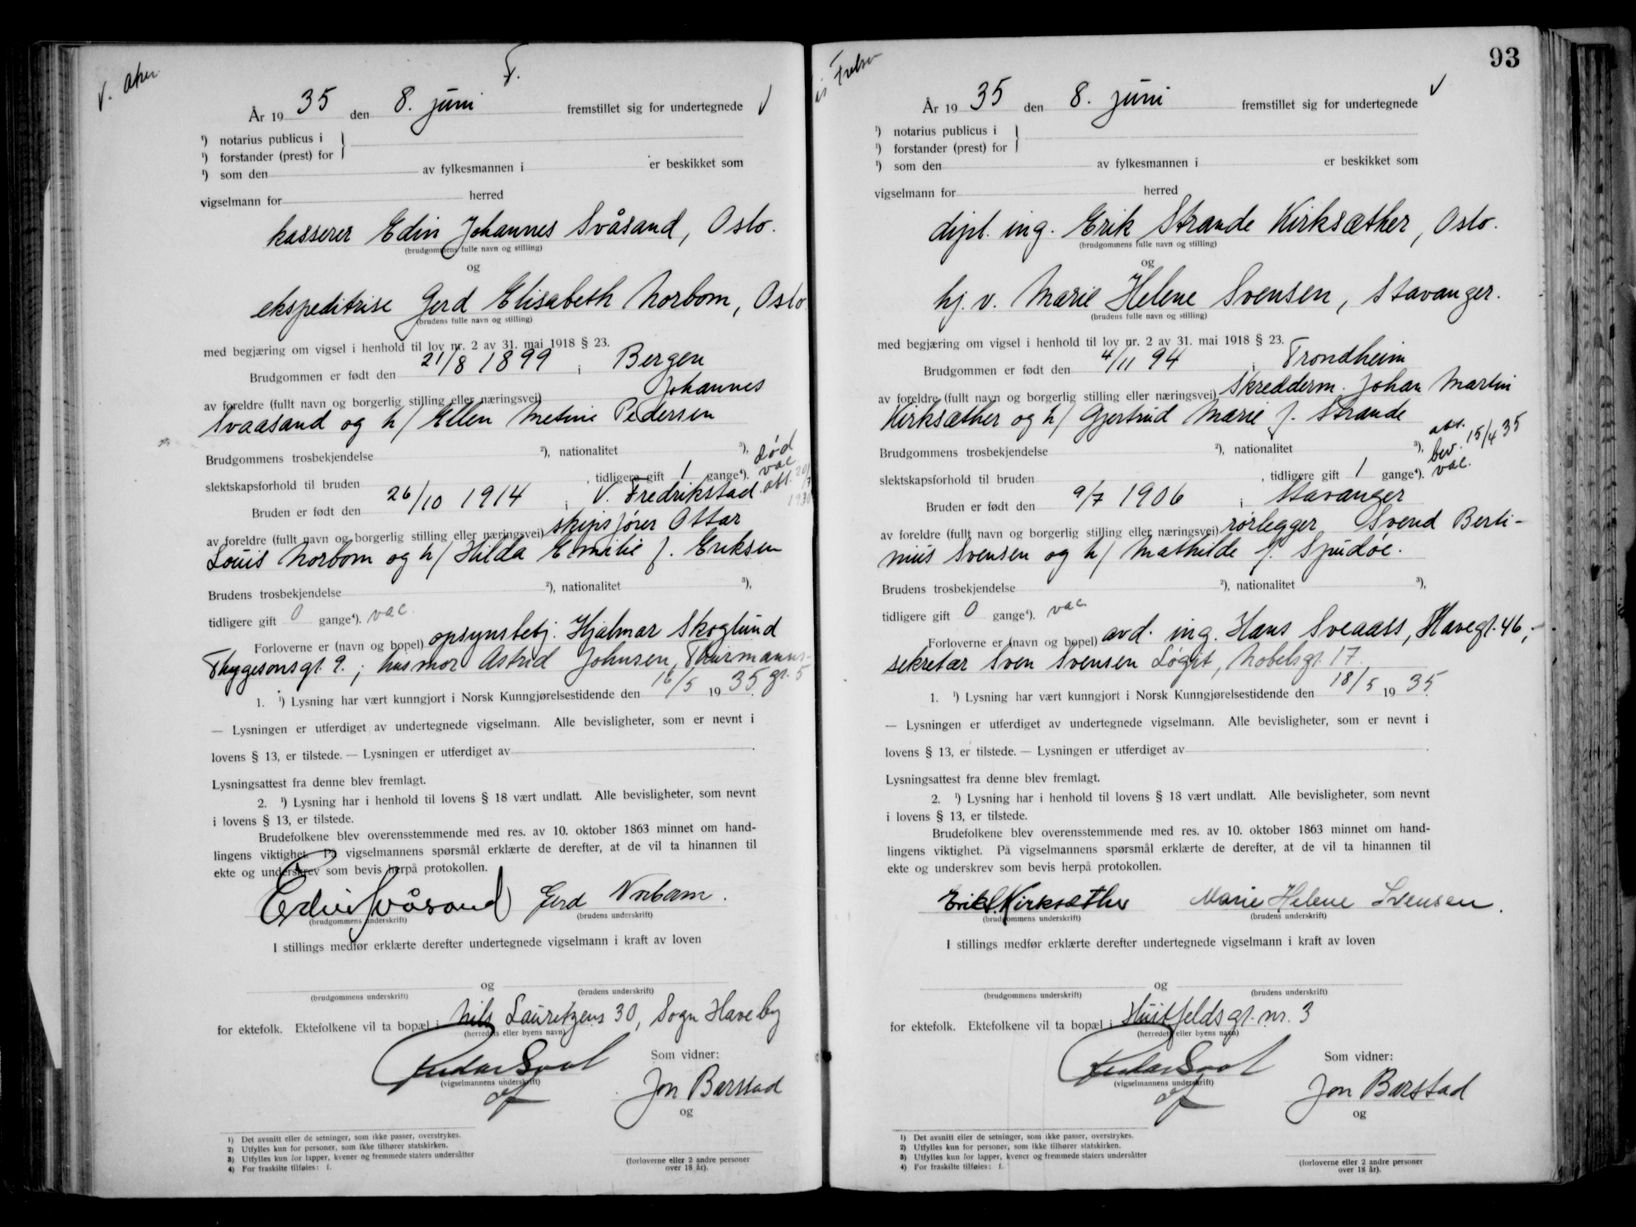 V. Aker
F.
År 19 35 den 8. juni fremstillet sig for undertegnede V
¹) notarius publicus i
¹) forstander (prest) for
¹) som den av fylkesmannen i er beskikket som
vigselmann for herred
kasserer Edin Johannes Svåsand, Oslo.
(brudgommens fulle navn og stilling)
og
ekspeditrise Gerd Elisabeth Norbom, Oslo
(brudens fulle navn og stilling)
med begjæring om vigsel i henhold til lov nr. 2 av 31. mai 1918 § 23.
Brudgommen er født den 21/8 1899 i Bergen
Johannes
av foreldre (fullt navn og borgerlig stilling eller næringsvei)
Svaasand og h/ Ellen Metine Pedersen
Brudgommens trosbekjendelse ²), nationalitet ³), død
slektskapsforhold til bruden , tidligere gift 1 gange⁴). vac. att.
Bruden er født den 26/10 1914 i V. Fredrikstad
av foreldre (fullt navn og borgerlig stilling eller næringsvei) skipsfører Ottar
Louis Norbom og h/ Hilda Emilie f. Eriksen
Brudens trosbekjendelse ²), nationalitet ³),
tidligere gift 0 gange⁴). vac.
Forloverne er (navn og bopel) opsynsbetj. Hjalmar Skoglund
Thygesonsgt. 9. ; husmor Astrid Johnsen, Thurmanns-
gt. 5
1. ¹) Lysning har vært kunngjort i Norsk Kunngjørelsestidende den 16/5 19 35.
— Lysningen er utferdiget av undertegnede vigselmann. Alle bevisligheter, som er nevnt i
lovens § 13, er tilstede. — Lysningen er utferdiget av
Lysningsattest fra denne blev fremlagt.
2. ¹) Lysning har i henhold til lovens § 18 vært undlatt. Alle bevisligheter, som nevnt
i lovens § 13, er tilstede.
Brudefolkene blev overensstemmende med res. av 10. oktober 1863 minnet om hand-
lingens viktighet. På vigselmannens spørsmål erklærte de derefter, at de vil ta hinannen til
ekte og underskrev som bevis herpå protokollen.
Edin Svåsand Gerd Norbom.
(brudgommens underskrift) (brudens underskrift)
I stillings medfør erklærte derefter undertegnede vigselmann i kraft av loven
og
(brudgommens underskrift) (brudens underskrift)
for ektefolk. Ektefolkene vil ta bopæl i Nils Lauritzens 30, Sogn Haveby
(herredets eller byens navn)
Som vidner:
(vigselmannens underskrift)
Jon Barstad
og
1) Det avsnitt eller de setninger, som ikke passer, overstrykes.
2) Utfylles kun for personer, som ikke tilhører statskirken.
3) Utfylles kun for lapper, kvener og fremmede staters undersåtter
4) For fraskilte tilføies: f.
(forloverne eller 2 andre personer
over 18 år).
93
År 19 35 den 8. juni fremstillet sig for undertegnede V
¹) notarius publicus i
¹) forstander (prest) for
¹) som den av fylkesmannen i er beskikket som
vigselmann for herred
dipl. ing. Erik Strande Kirksæther, Oslo.
(brudgommens fulle navn og stilling)
og
hj. v. Marie Helene Svensen, Stavanger.
(brudens fulle navn og stilling)
med begjæring om vigsel i henhold til lov nr. 2 av 31. mai 1918 § 23.
Brudgommen er født den 4/11 94 i Trondheim
av foreldre (fullt navn og borgerlig stilling eller næringsvei) Skredderm. Johan Martin
Kirksæther og h/ Gjertrud Marie f. Strande
Brudgommens trosbekjendelse ²), nationalitet ³), bev. 15/4 35
slektskapsforhold til bruden , tidligere gift 1 gange⁴). vac.
Bruden er født den 9/7 1906 i Stavanger
av foreldre (fullt navn og borgerlig stilling eller næringsvei) rørlegger Svend Berti-
nius Svensen og h/ Mathilde f. Spudøe.
Brudens trosbekjendelse ²), nationalitet ³),
tidligere gift 0 gange⁴). vac
Forloverne er (navn og bopel) avd. ing. Hans Sveaass, Havegt. 46,
sekretær Sven Svensen Løgit, Nobelsgt. 17
1. ¹) Lysning har vært kunngjort i Norsk Kunngjørelsestidende den 18/5 19 35
— Lysningen er utferdiget av undertegnede vigselmann. Alle bevisligheter, som er nevnt i
lovens § 13, er tilstede. — Lysningen er utferdiget av
Lysningsattest fra denne blev fremlagt.
2. ¹) Lysning har i henhold til lovens § 18 vært undlatt. Alle bevisligheter, som nevnt
i lovens § 13, er tilstede.
Brudefolkene blev overensstemmende med res. av 10. oktober 1863 minnet om hand-
lingens viktighet. På vigselmannens spørsmål erklærte de derefter, at de vil ta hinannen til
ekte og underskrev som bevis herpå protokollen.
Erik S Kirksæther Marie Helene Svensen.
(brudgommens underskrift) (brudens underskrift)
I stillings medfør erklærte derefter undertegnede vigselmann i kraft av loven
og
(brudgommens underskrift) (brudens underskrift)
for ektefolk. Ektefolkene vil ta bopæl i Huitfeldsgt. nr. 3
(herredets eller byens navn)
Som vidner:
(vigselmannens underskrift)
Jon Barstad
og
1) Det avsnitt eller de setninger, som ikke passer, overstrykes.
2) Utfylles kun for personer, som ikke tilhører statskirken.
3) Utfylles kun for lapper, kvener og fremmede staters undersåtter
4) For fraskilte tilføies: f.
(forloverne eller 2 andre personer
over 18 år).